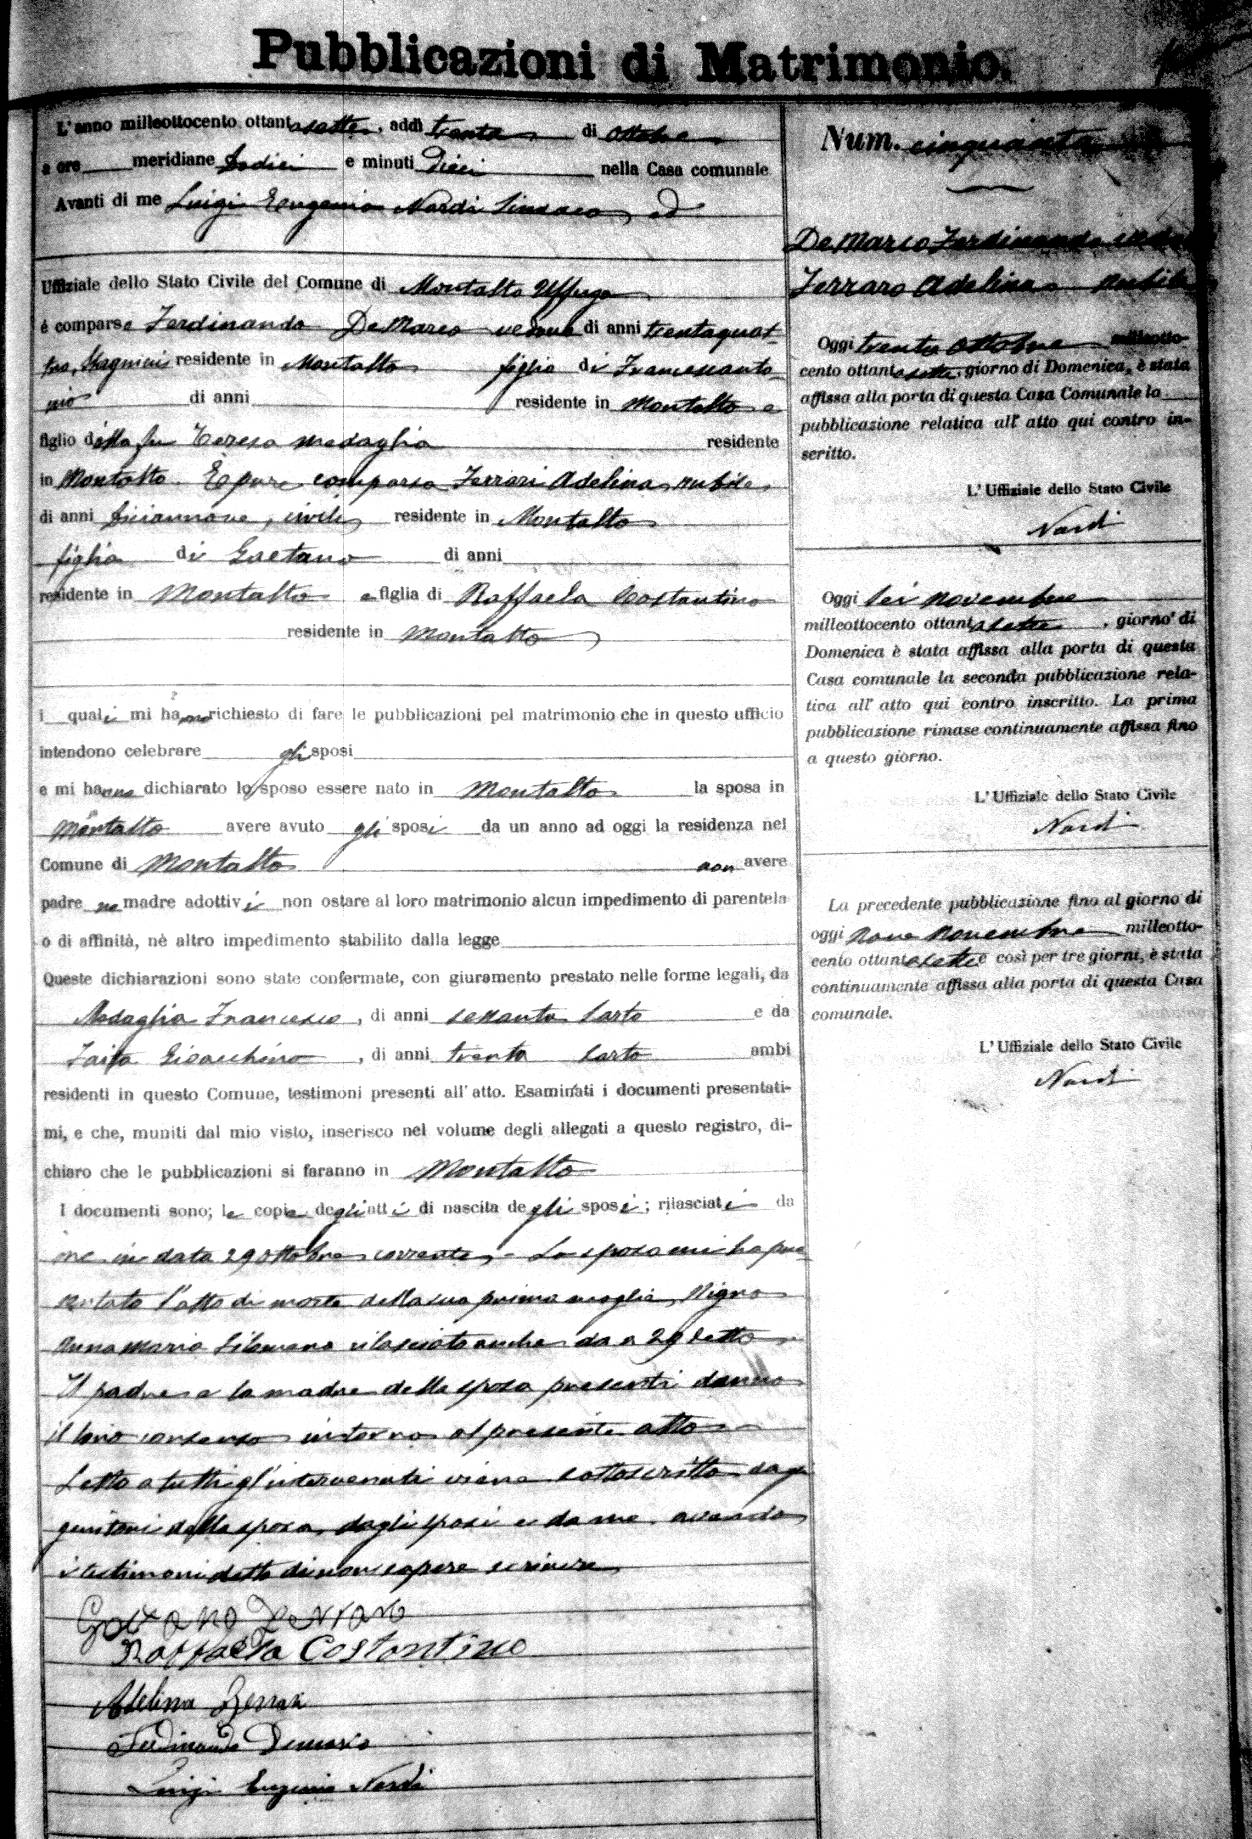 Pubblicazioni di Matrimonio.
L'anno milleottocento ottantasette, addì trenta di Ottobre
a ore meridiane dodici e minuti Dieci nella Casa comunale
Avanti di me Luigi Eugenio Nardi Sindaco ed
Uffiziale dello Stato Civile del Comune di Montalto Uffugo
è comparso Ferdinando De Marco vedovo di anni trentaquat-
tro, residente in Montalto figlio di Francescanto-
nio di anni residente in Montalto e
figlio della fu Teresa Medaglia residente
in Montalto. È pure comparsa Ferrari Adelina nubile,
di anni diciannove, civile residente in Montalto
figlia di Gaetano di anni
residente in Montalto e figlia di Raffaela Costantino
residente in Montalto
i quali mi hanno richiesto di fare le pubblicazioni pel matrimonio che in questo ufficio
intendono celebrare gli sposi
e mi hanno dichiarato lo sposo essere nato in Montalto la sposa in
Montalto avere avuto gli sposi da un anno ad oggi la residenza nel
Comune di Montalto non avere
padre ne madre adottivi non ostare al loro matrimonio alcun impedimento di parentela
o di affinità, nè altro impedimento stabilito dalla legge
Queste dichiarazioni sono state confermate, con giuramento prestato nelle forme legali, da
Medaglia Francesco, di anni sessanta Sarto e da
Gioacchino, di anni trenta Sarto ambi
residenti in questo Comune, testimoni presenti all'atto. Esaminati i documenti presentati-
mi, e che, muniti dal mio visto, inserisco nel volume degli allegati a questo registro, di-
chiaro che le pubblicazioni si faranno in Montalto
I documenti sono; le copie degli atti di nascita degli sposi; rilasciati da
me in data 29 ottobre corrente, - Lo sposo mi ha pre-
sentato l'atto di morte della sua prima moglie, Nigro
Anna Maria Filomena rilasciato anche da a 29 detto
Il padre e la madre della sposa presenti danno
il loro consenso intorno al presente atto
Letto a tutti gl'intervenuti viene sottoscritto da
genitori della sposa, dagli sposi e da me avendo
i testimoni detto di non sapere scrivere
Raffaela Costantino
Adelina Ferrari
Ferdinando Demarco
Luigi Eugenio Nardi
Num. cinquanta
De Marco Ferdinando vedovo
Ferraro Adelina nubile
Oggi trenta Ottobre milleotto-
cento ottantasette, giorno di Domenica, è stata
affissa alla porta di questa Casa Comunale la
pubblicazione relativa all'atto qui contro in-
scritto.
L'Uffiziale dello Stato Civile
Nardi
Oggi sei novembre
milleottocento ottantasette, giorno di
Domenica è stata affissa alla porta di questa
Casa comunale la seconda pubblicazione rela-
tiva all'atto qui contro inscritto. La prima
pubblicazione rimase continuamente affissa fino
a questo giorno.
L'Uffiziale dello Stato Civile
Nardi
La precedente pubblicazione fino al giorno di
oggi nove novembre milleotto-
cento ottantasette e così per tre giorni, è stata
continuamente affissa alla porta di questa Casa
comunale.
L'Uffiziale dello Stato Civile
Nardi